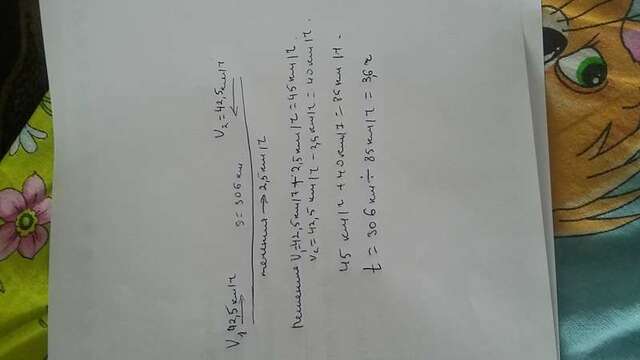 V₁ 42,5 км/ч
S = 306 км
V₂ = 42,5 км/ч
течения → 2,5 км/ч
Решение V₁ = 42,5 км/ч + 2,5 км/ч = 45 км/ч.
V₂ = 42,5 км/ч - 2,5 км/ч = 40 км/ч.
45 км/ч + 40 км/ч = 85 км/ч.
t = 306 км ÷ 85 км/ч = 3,6 ч